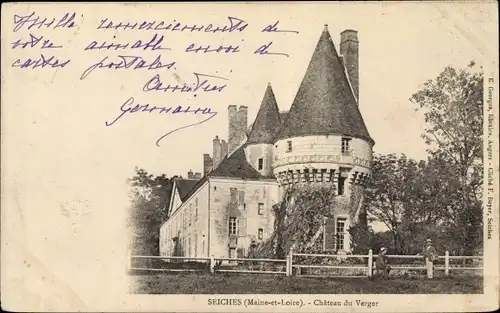 Mille remerciements de
votre aimable envoi de
cartes postales.
Amitiés
Germaine
SEICHES (Maine-et-Loire). - Château du Verger
E. Georges, libraire, Angers - Cliché F. Boyer, Seiches